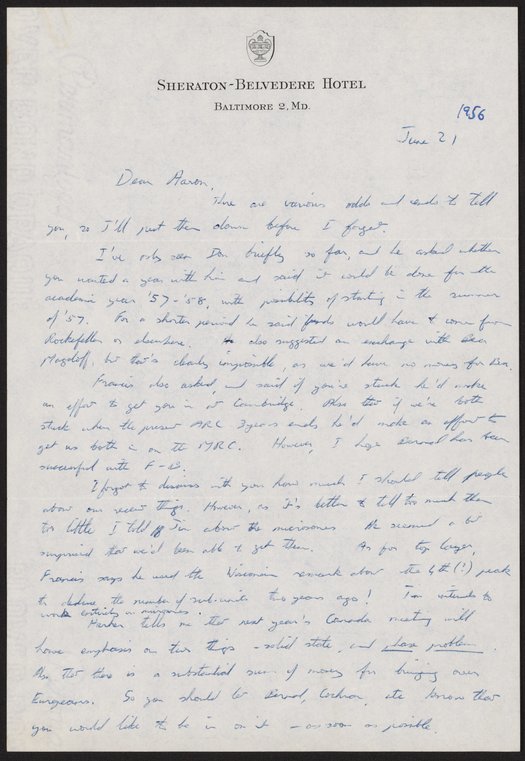 SHERATON-BELVEDERE HOTEL
BALTIMORE 2, MD.
1956
June 21
Dear Aaron,
There are various odds and ends to tell
you, so I'll just them down before I forget.
I've only seen Don briefly so far, and he asked whether
you wanted a year with him and said it could be done for the
academic year '57-'58, with possibility of starting in the summer
of '57. For a shorter period he said funds would have to come from
Rockefeller or elsewhere. He also suggested an exchange with Bea
Magdoff, but that's clearly impossible, as we'd have no money for Bea.
Francis also asked, and said if you're stuck he'd make
an effort to get you in at Cambridge. Also that if we're both
stuck when the present ARC 3 years ends he'd make an effort to
get us both in on the MRC. However, I hope Bernal has been
successful with
I forgot to discuss with you how much I should tell people
about our recent things. However, as it's better to tell too much than
too little I told Jim about the microsomes. He seemed a bit
surprised that we'd been able to get them. As for top layer,
Francis says he used the Wisconsin remark about the 4th (!) peak
to deduce the number of sub-units two years ago! Jim intends to
work entirely on microsomes.
Harker tells me that next year's Canada meeting will
have emphasis on two things - solid state, and phase problem.
Also that there is a substantial sum of money for bringing over
Europeans. So you should let Bernal, Cochran, etc know that
you would like to be in on it - as soon as possible.